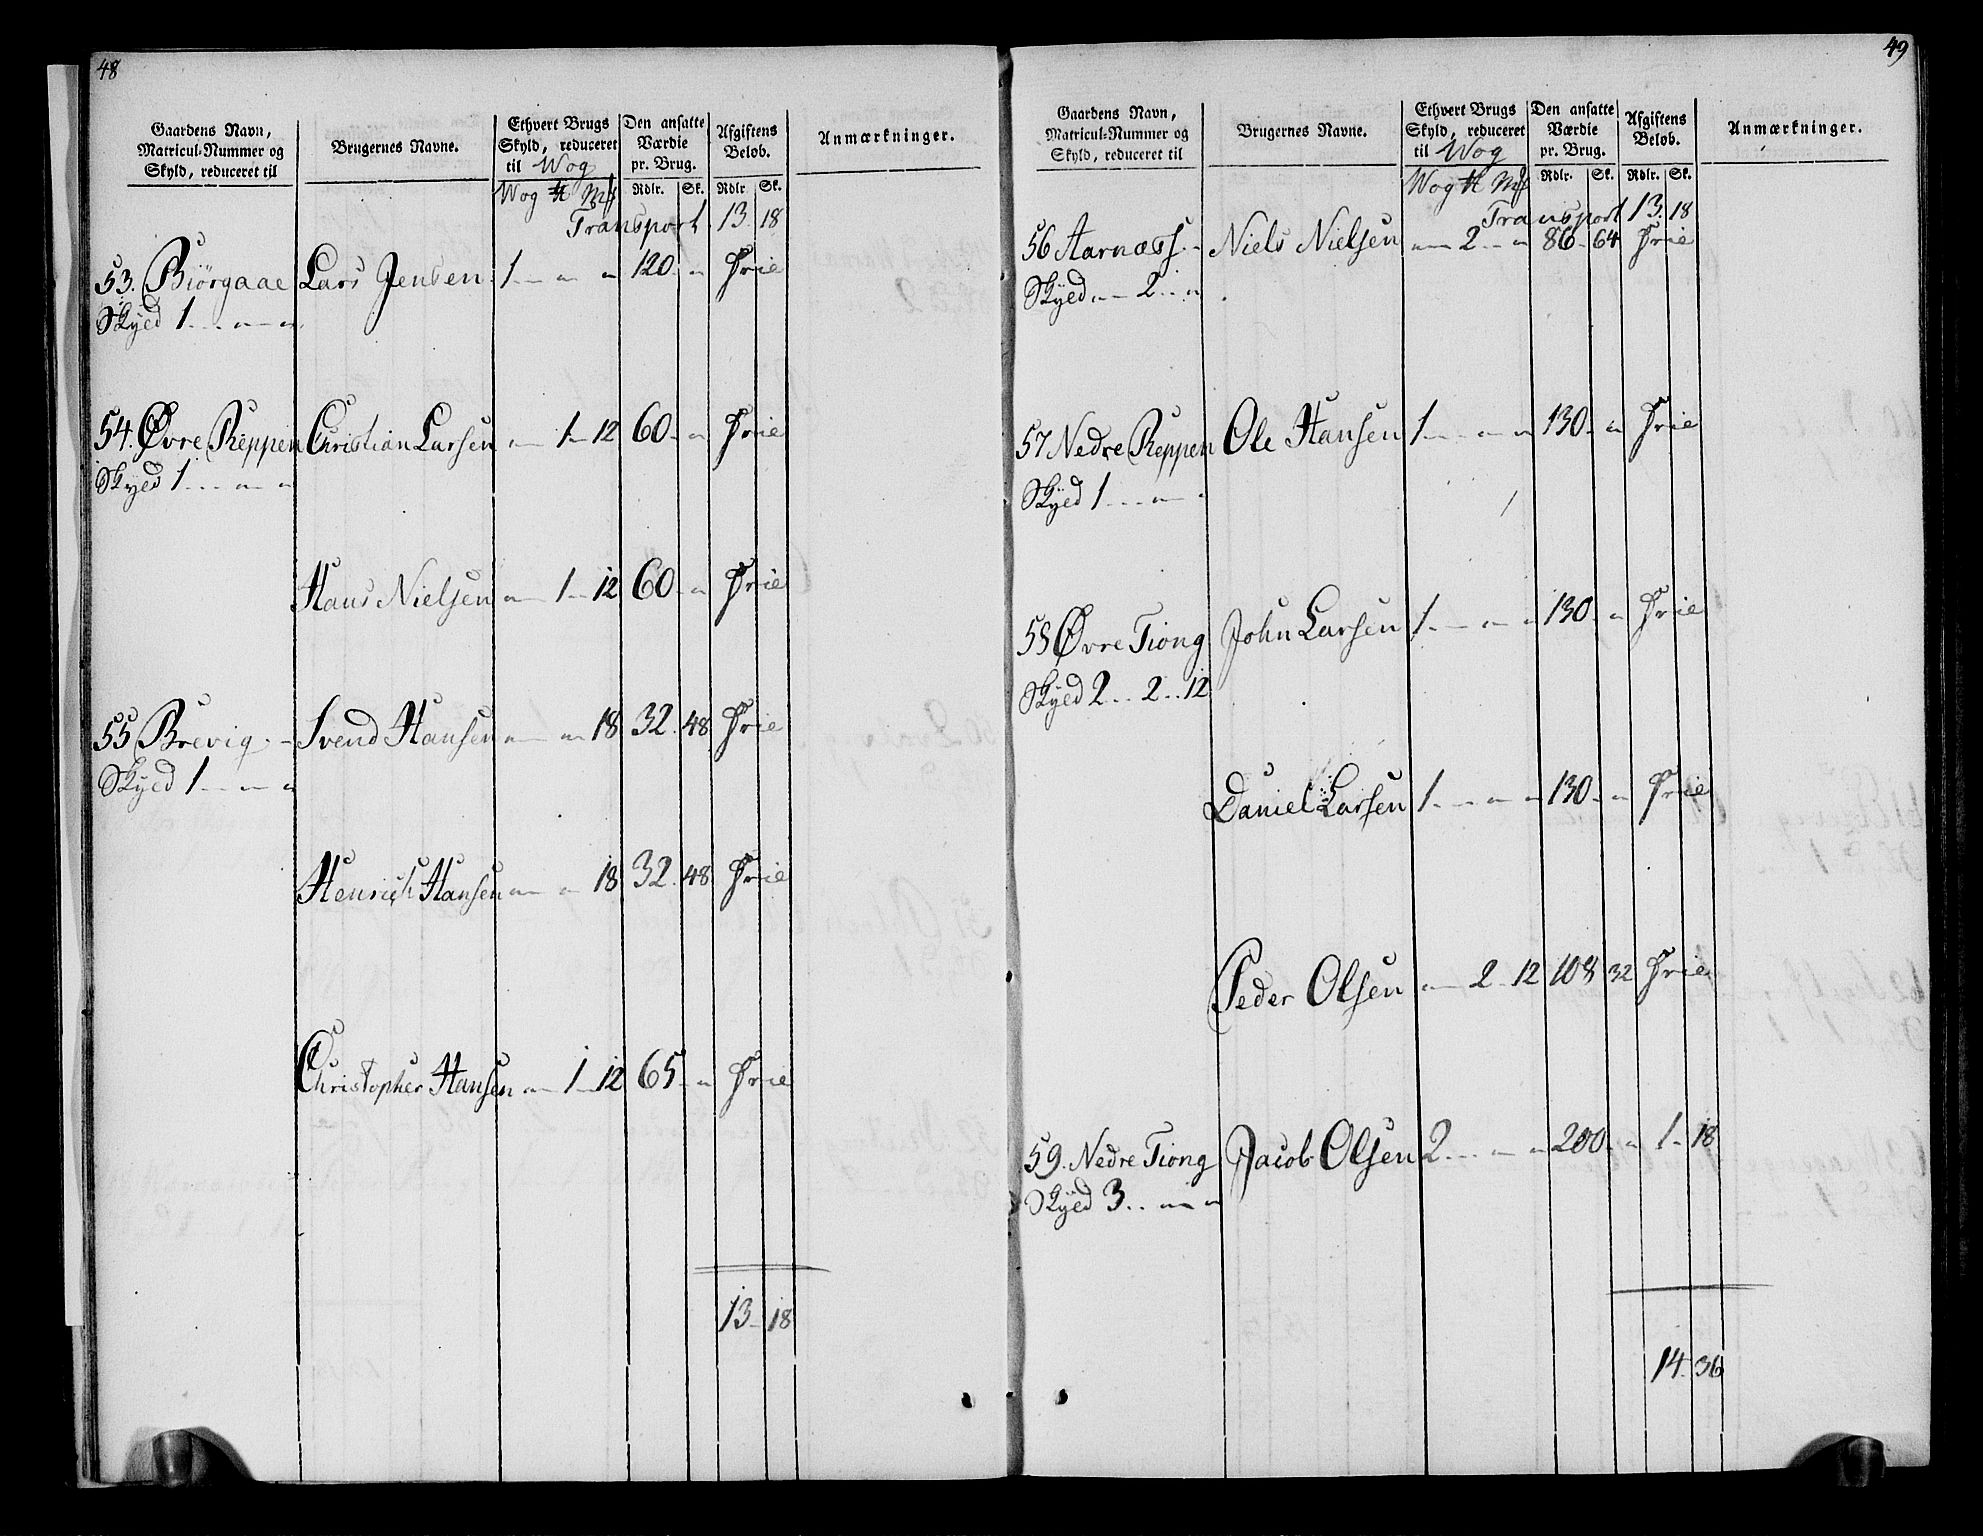 48
Gaardens Navn, Matricul-Nummer og Skyld, reduceret til
Brugernes Navne.
Ethvert Brugs Skyld, reduceret til Wog
Den ansatte Værdie pr. Brug.
Afgiftens Beløb.
Anmærkninger.
Wog ℔ Mk Rdlr. Sk. Rdlr Sk.
Transport 13 18
53. Biørgaae Lars Jensen 1 - " " 120 - " Frie
Skyld 1 - " - "
54. Øvre Reppen Christian Larsen " 1 - 12 60 - " Frie
Skyld 1 - " - "
Hans Nielsen " - 1 - 12 60 - " Frie
55 Brevig - Svend Hansen " - " 18 32 48 Frie
Skyld 1 - " - "
Henrich Hansen " - " 18 32 48 Frie
Christopher Hansen " - 1 - 12 65 - " Frie
13 - 18
49
Gaardens Navn, Matricul-Nummer og Skyld, reduceret til
Brugernes Navne.
Ethvert Brugs Skyld, reduceret til Wog
Den ansatte Værdie pr. Brug.
Afgiftens Beløb.
Anmærkninger.
Wog ℔ Mk Rdlr. Sk. Rdlr. Sk.
Transport 13 18
56 Aarnæss - Niels Nielsen " - 2 - " 86 - 64 Frie
Skyld " - 2 - "
57 Nedre Reppen Ole Hansen 1 - " - " 130 - " Frie
Skyld 1 - " - "
58 Øvre Tiong John Larsen 1 - " - " 130 - " Frie
Skyld 2 - 2 - 12
Daniel Larsen 1 - " - " 130 - " Frie
Peder Olsen " - 2 - 12 108 32 Frie
59. Nedre Tiong Jacob Olsen 2 - " - " 200 - " 1 - 18
Skyld 3 - " - "
14 - 36